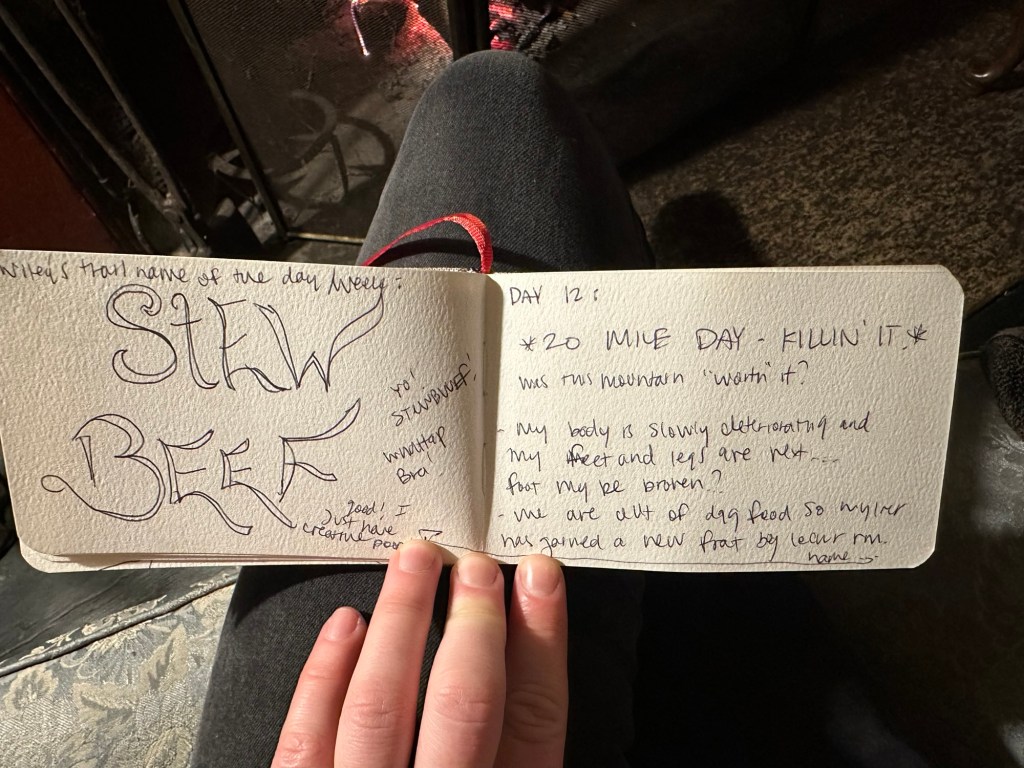 trail name of the day/week:
STEW
BEEF
Yo!
STEWBEEF!
whattap
Bra
good! I
Just have
creative
DAY 12:
*20 MILE DAY - KILLIN' IT*
was this mountain "worth" it?
- my body is slowly deteriorating and
my feet and legs are next...
foot my be broken??
- we are out of dog food so
has gained a new
name